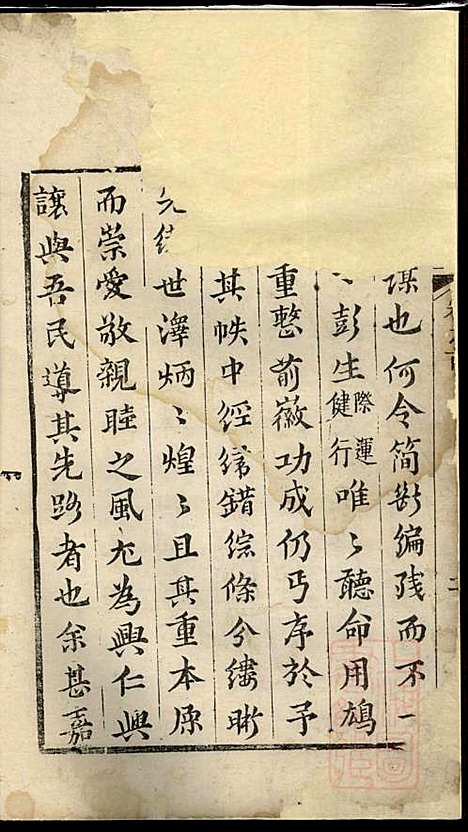 謀也何令简斷編残而不一
彭生際運健行唯〻聽命用鳩
重整前徽功成仍丐序於予
其帙中經緯錯綜條分縷晰
世澤炳〻煌〻且其重本原
而崇愛敬親睦之風尤為興仁興
讓與吾民導其先路者也余甚嘉